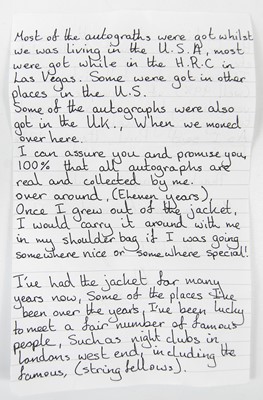 Most of the autographs were got whilst
we was living in the U.S.A, most
were got while in the H.R.C in
Las Vegas. Some were got in other
places in the U.S.
Some of the autographs were also
got in the U.K., When we moved
over here.
I can assure you and promise you,
100% that all autographs are
real and collected by me.
over around, (Eleven years),
Once I grew out of the jacket,
I would carry it around with me
in my shoulder bag if I was going
somewhere nice or somewhere special!
I've had the jacket for many
years now, Some of the places I've
been over the years, I've been lucky
to meet a fair number of famous
people, Such as night clubs in
londons west end, including the
famous, (stringfellows).